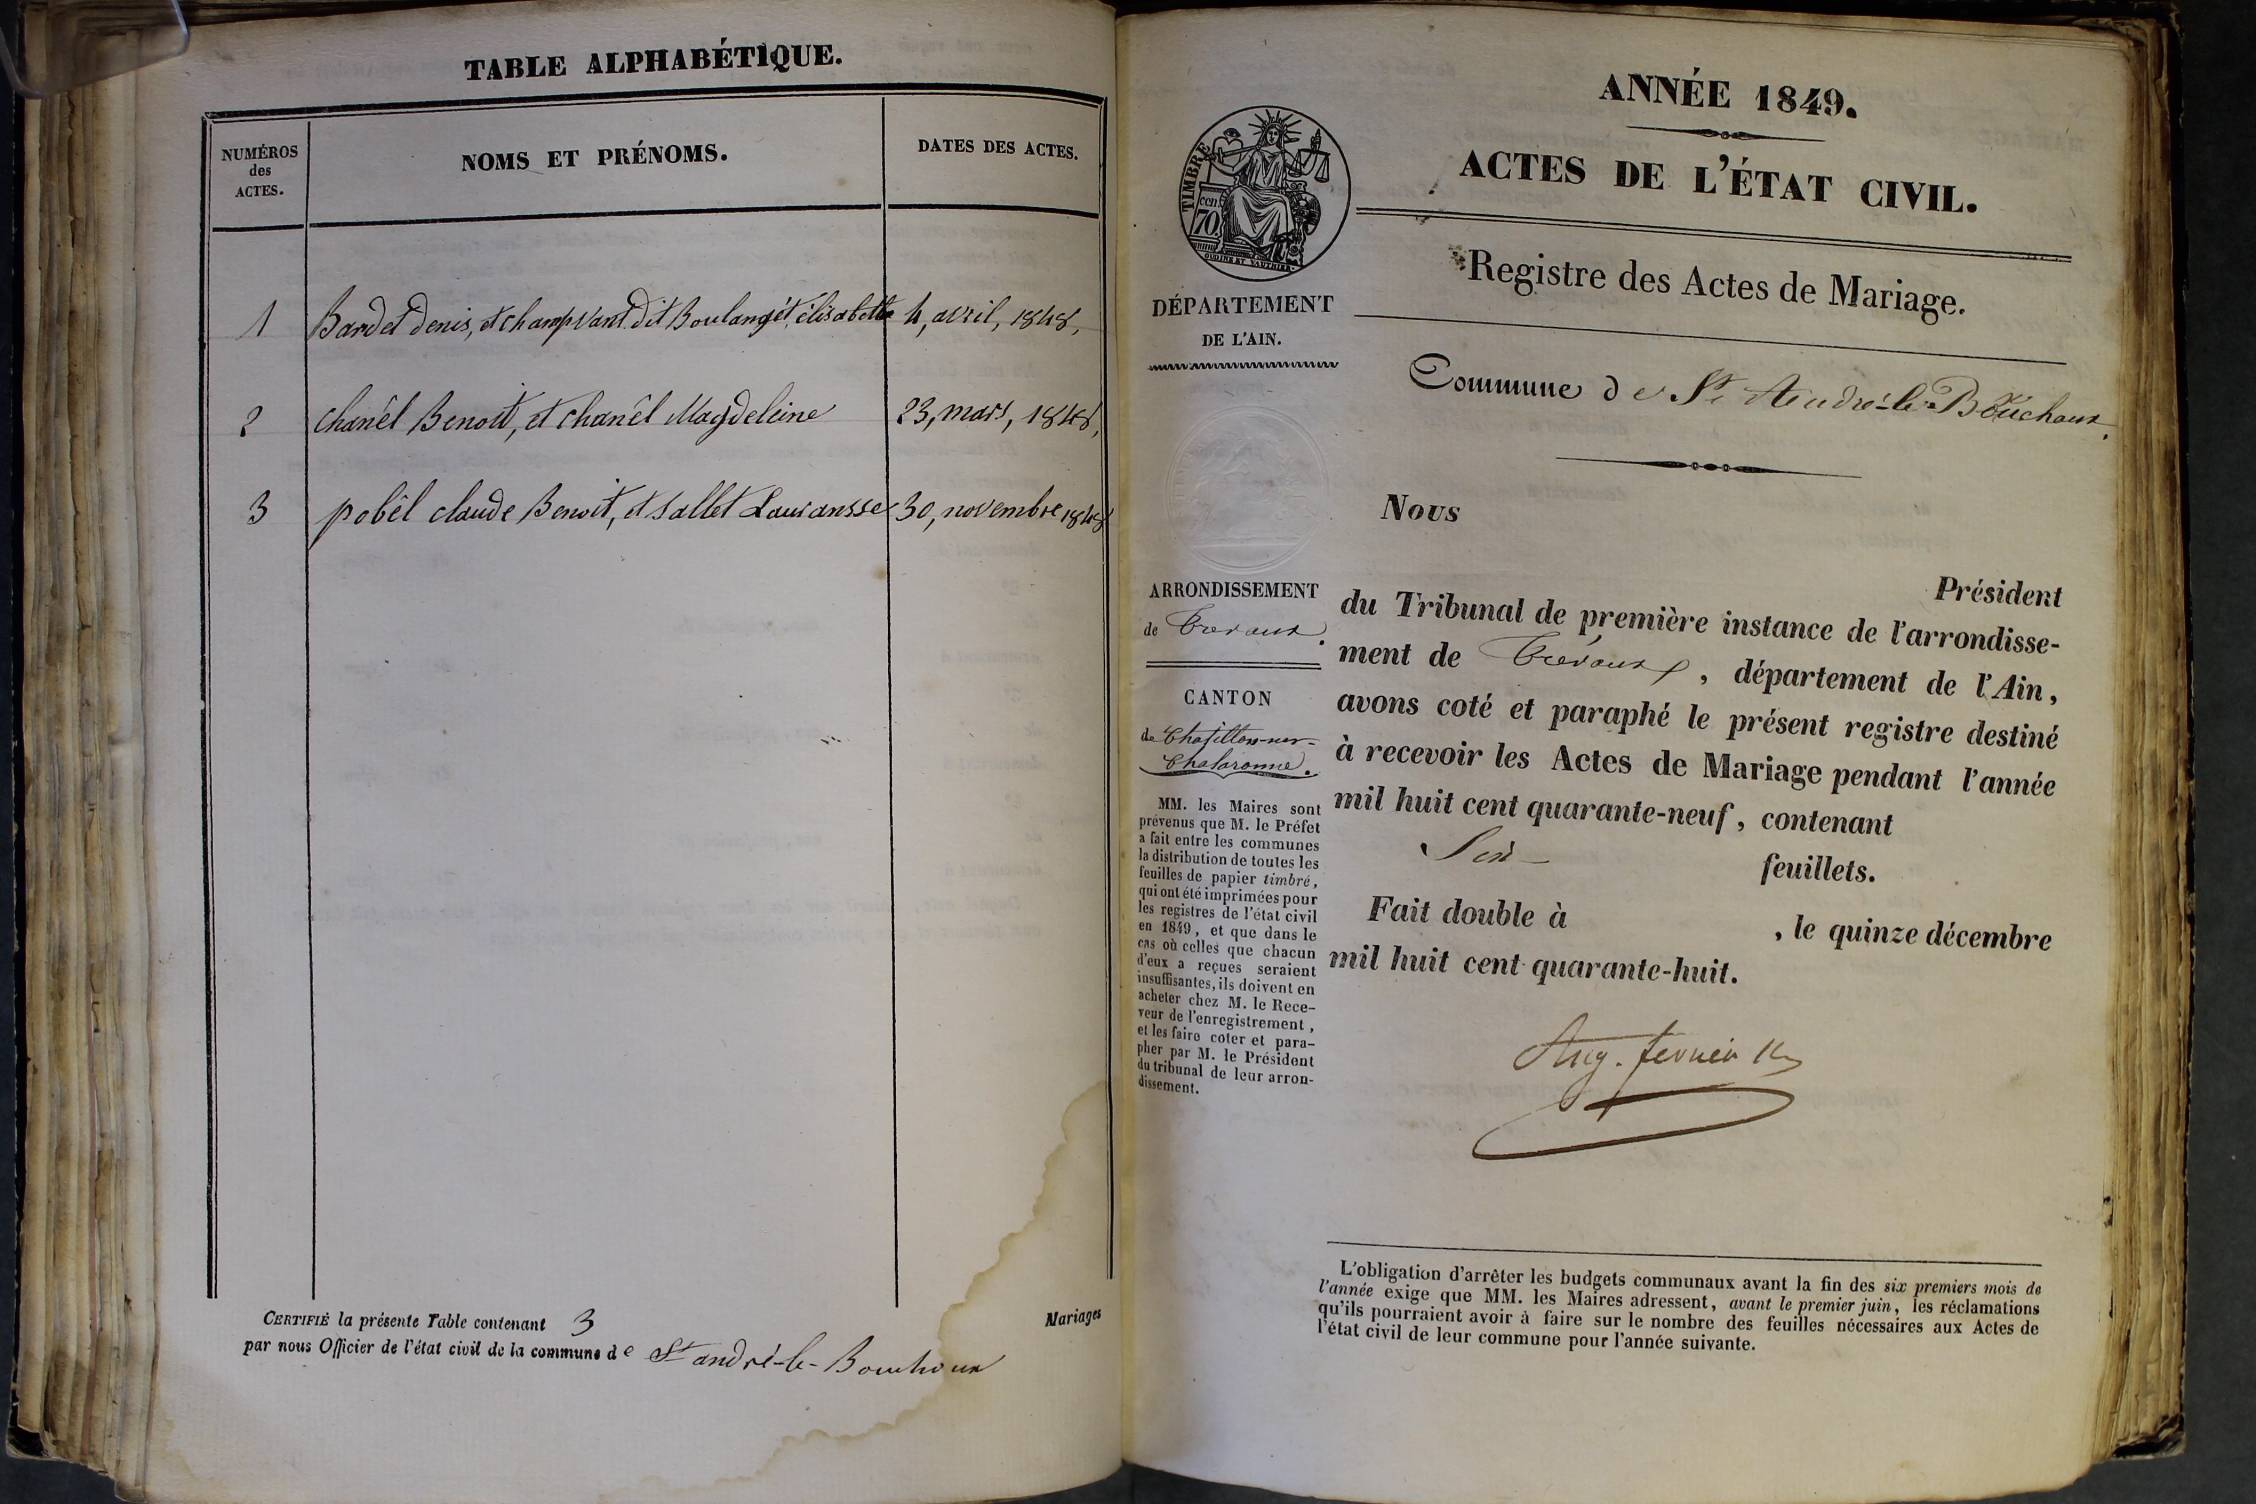 TABLE ALPHABÉTIQUE.
NUMÉROS
des
ACTES.
NOMS ET PRÉNOMS.
DATES DES ACTES.
1 Bardet denis, et champvant dit Boulangét élisabeth 4, avril, 1848,
2 chanêl Benoit, et chanêl Magdeleine 23, mars, 1848,
3 pobêl claude Benoit, et sallet Lauransse 30, novembre 1848
CERTIFIÉ la présente Table contenant 3 Mariages
par nous Officier de l'état civil de la commune de St andré-le-Bouchoux
ANNÉE 1849.
ACTES DE L'ÉTAT CIVIL.
Registre des Actes de Mariage.
Commune de St André-le-Bouchoux.
TIMBRE
cen
70.
DÉPARTEMENT
DE L'AIN.
ARRONDISSEMENT
de Trévoux.
CANTON
de Chatillon-sur-
Chalaronne.
MM. les Maires sont
prévenus que M. le Préfet
a fait entre les communes
la distribution de toutes les
feuilles de papier timbré,
qui ont été imprimées pour
les registres de l'état civil
en 1849, et que dans le
cas où celles que chacun
d'eux a reçues seraient
insuffisantes, ils doivent en
acheter chez M. le Rece-
veur de l'enregistrement,
et les faire coter et para-
pher par M. le Président
du tribunal de leur arron-
dissement.
Nous
Président
du Tribunal de première instance de l'arrondisse-
ment de Trévoux, département de l'Ain,
avons coté et paraphé le présent registre destiné
à recevoir les Actes de Mariage pendant l'année
mil huit cent quarante-neuf, contenant
Six feuillets.
Fait double à , le quinze décembre
mil huit cent quarante-huit.
Aug.
L'obligation d'arrêter les budgets communaux avant la fin des six premiers mois de
l'année exige que MM. les Maires adressent, avant le premier juin, les réclamations
qu'ils pourraient avoir à faire sur le nombre des feuilles nécessaires aux Actes de
l'état civil de leur commune pour l'année suivante.